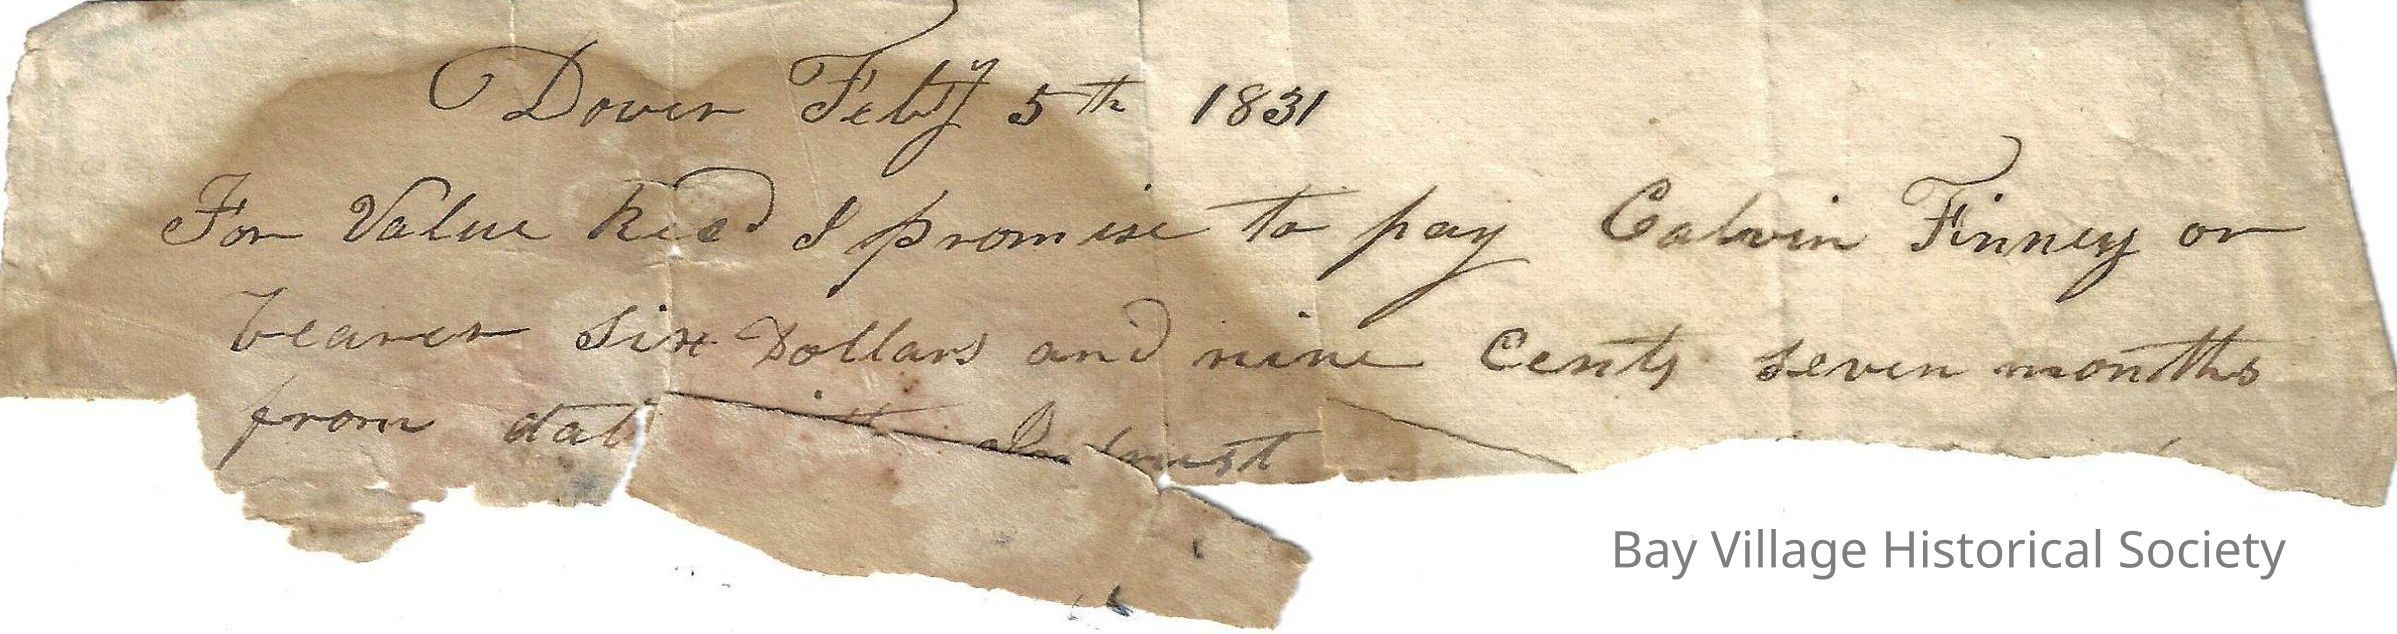 Dover Feby 5th 1831
For Value Recd I promise to pay Calvin Finney or
bearer Six Dollars and nine Cents seven months
from date with Intrust
Bay Village Historical Society